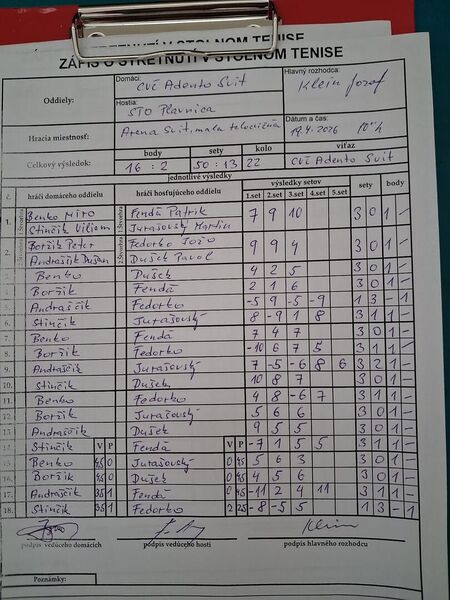 ZÁPIS O STRETNUTÍ V STOLNOM TENISE
Oddiely: Domáci: CVČ Adento Svit Hlavný rozhodca: Klein Jozef
Hostia: STO Plavnica
Hracia miestnosť: Arena Svit, mala telocvičňa Dátum a čas: 19.4.2026 10°° h
Celkový výsledok: body 16 : 2 sety 50 : 13 kolo 22 víťaz CVČ Adento Svit
jednotlivé výsledky
č. hráči domáceho oddielu hráči hosťujúceho oddielu výsledky setov sety body
1.set 2.set 3.set 4.set 5.set
1. Benko Miro Fendá Patrik 7 9 10 3 0 1 -
Stinčik Viliem Jurašovský Martin
2. Boržik Peter Fedorko Jožo 9 9 4 3 0 1 -
Andraščik Dušan Dušek Pavol
3. Benko Dušek 4 2 5 3 0 1 -
4. Boržik Fendá 2 1 6 3 0 1 -
5. Andraščik Fedorko -5 9 -5 -9 1 3 - 1
6. Stinčik Jurašovský 8 -9 1 8 3 1 1 -
7. Benko Fendá 7 4 7 3 0 1 -
8. Boržik Fedorko -10 6 7 5 3 1 1 -
9. Andraščik Jurašovský 7 -5 -6 8 6 3 2 1 -
10. Stinčik Dušek 10 8 7 3 0 1 -
11. Benko Fedorko 4 8 -6 7 3 1 1 -
12. Boržik Jurašovský 5 6 6 3 0 1 -
13. Andraščik Dušek 9 5 5 3 0 1 -
14. Stinčik V P Fendá V P -7 1 5 5 3 1 1 -
15. Benko 4,5 0 Jurašovský 0 4,5 5 6 3 3 0 1 -
16. Boržik 4,5 0 Dušek 0 4,5 4 5 6 3 0 1 -
17. Andraščik 3,5 1 Fendá 0 4,5 -11 2 4 11 3 1 1 -
18. Stinčik 3,5 1 Fedorko 2 2,5 -8 -5 5 1 3 - 1
podpis vedúceho domácich podpis vedúceho hostí podpis hlavného rozhodcu
Klein
Poznámky: